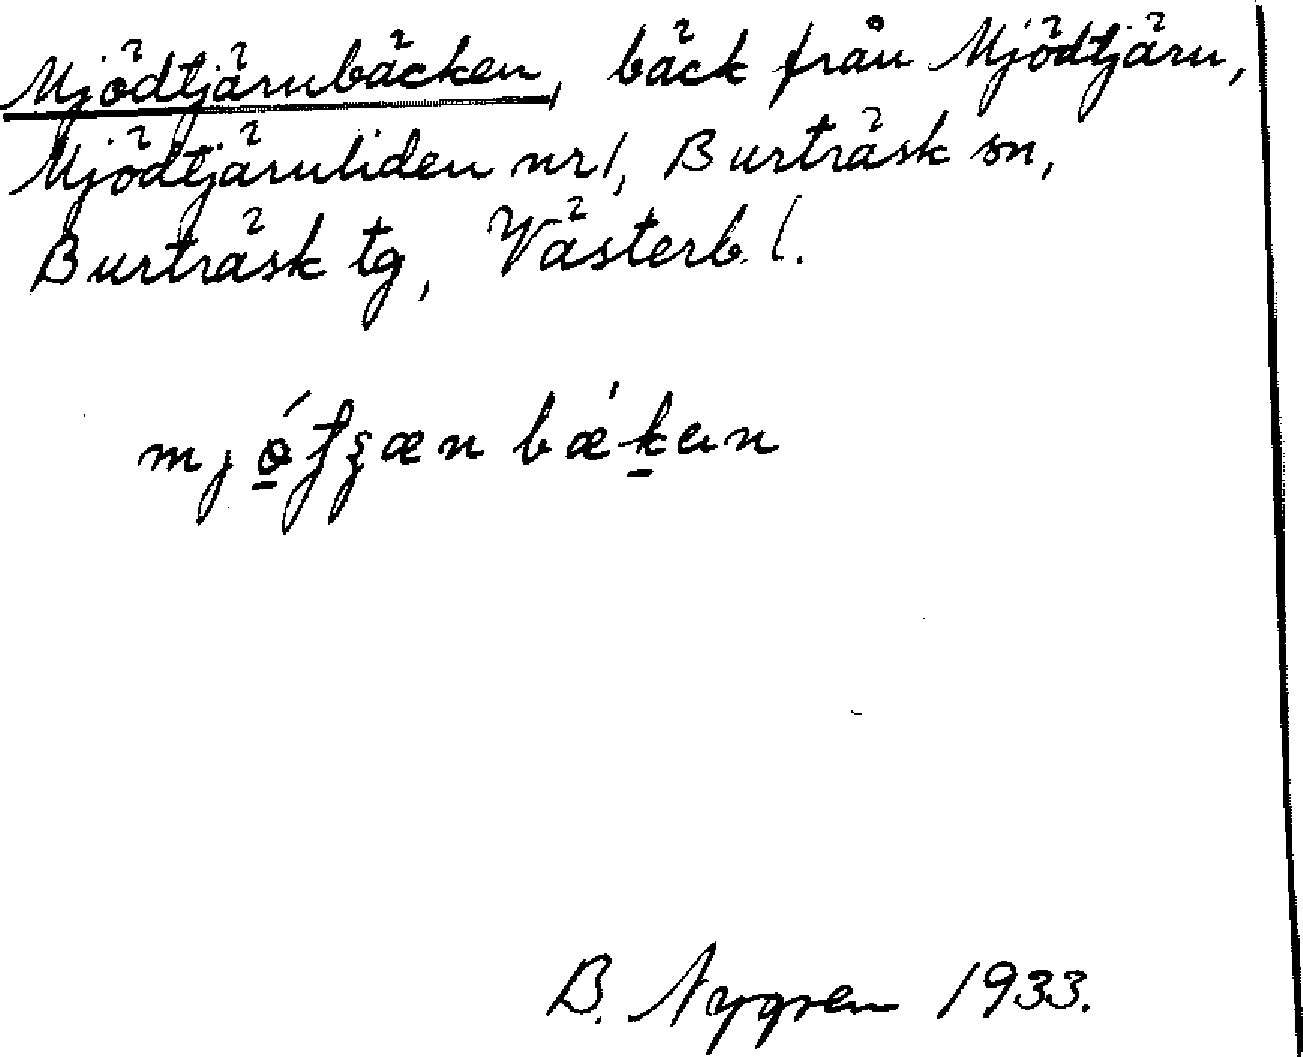 Mjödtjärnbäcken, bäck från Mjödtjärn,
Mjödtjärnliden nr 1, Burträsk sn,
Burträsk tg, Västerb. l.
B. Nygren 1933.